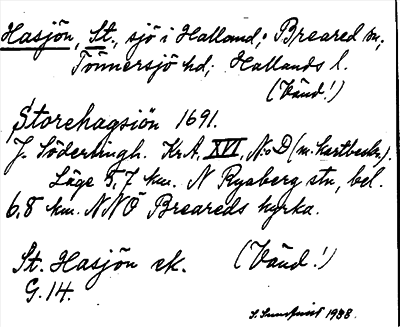 Hasjön, St., sjö i Halland; Breared sn;
Tönnersjö hd; Hallands l.
(Vänd!)
Storehagsiön 1691.
J. Söderlingh. Kr.A. XVI, N:o D (m. kartbeskr.).
Läge 5,7 km. N Ryaberg stn, bel.
6,8 km. NNÖ Breareds kyrka.
St. Hasjön ek. (Vänd!)
G. 14.
1938.